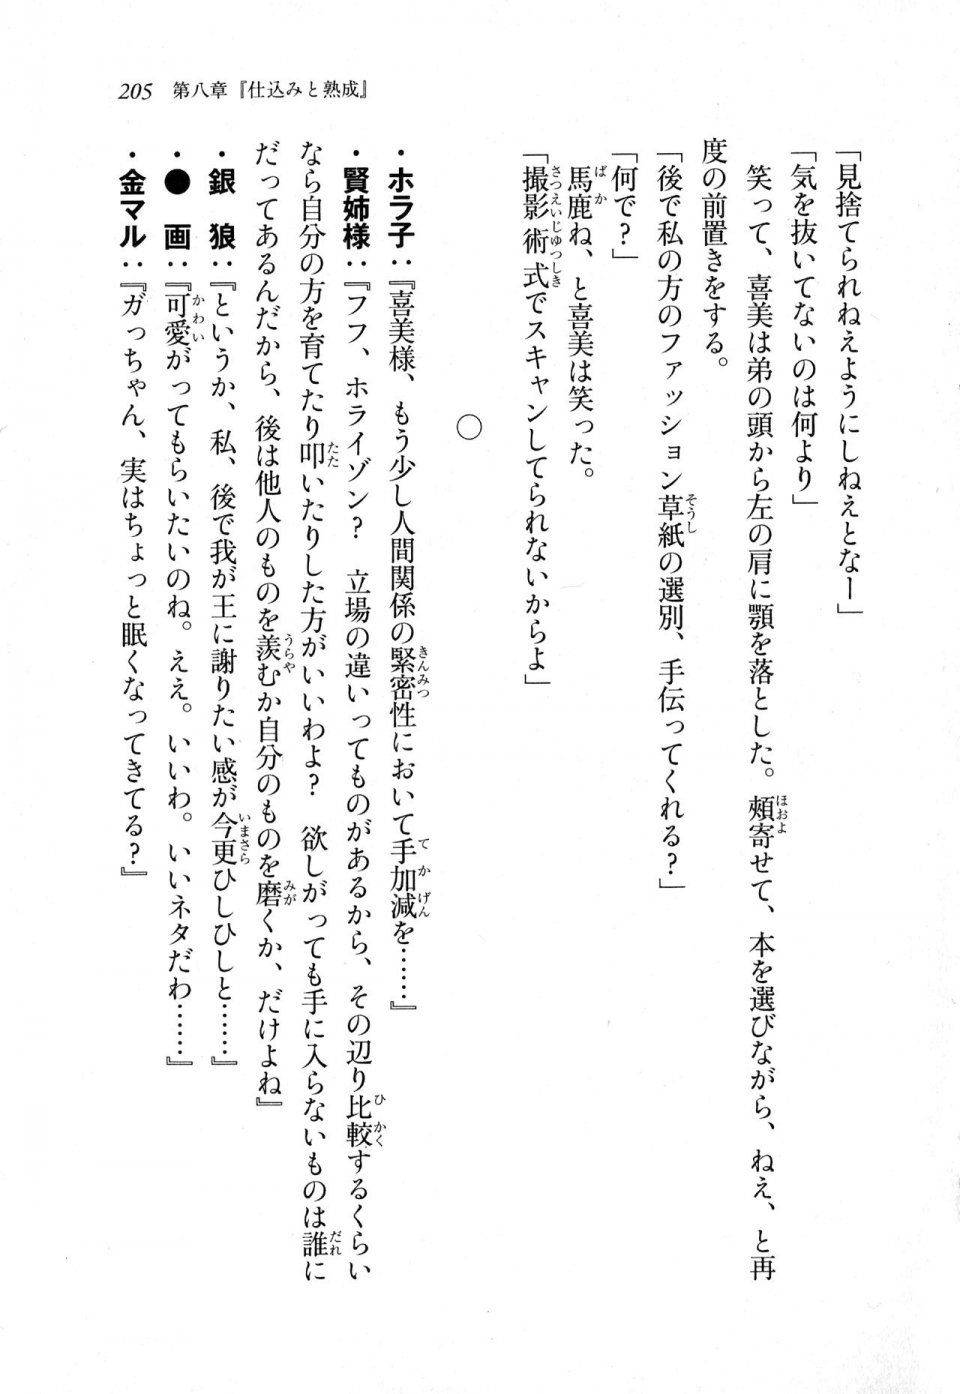 205　第八章『仕込みと熟成』
「見捨てられねえようにしねえとなー」
「気を抜いてないのは何より」
　笑って、喜美は弟の頭から左の肩に顎を落とした。頰寄せて、本を選びながら、ねえ、と再
度の前置きをする。
「後で私の方のファッション草紙の選別、手伝ってくれる？」
「何で？」
　馬鹿ね、と喜美は笑った。
「撮影術式でスキャンしてられないからよ」
○
・ホラ子：『喜美様、もう少し人間関係の緊密性において手加減を……』
・賢姉様：『フフ、ホライゾン？　立場の違いってものがあるから、その辺り比較するくらい
なら自分の方を育てたり叩いたりした方がいいわよ？　欲しがっても手に入らないものは誰に
だってあるんだから、後は他人のものを羨むか自分のものを磨くか、だけよね』
・銀　狼：『というか、私、後で我が王に謝りたい感が今更ひしひしと……』
・●　画：『可愛がってもらいたいのね。ええ。いいわ。いいネタだわ……』
・金マル：『ガっちゃん、実はちょっと眠くなってきてる？』